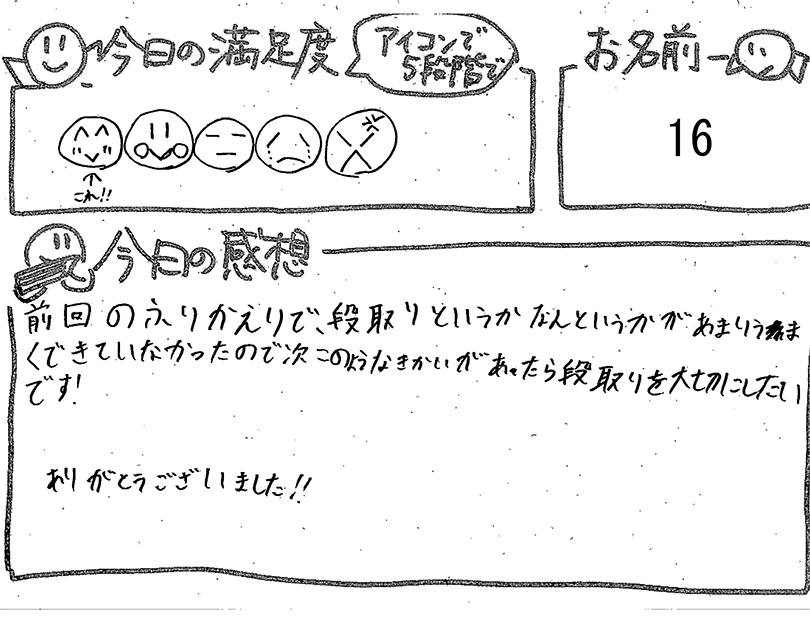 今日の満足度
アイコンで
5段階で
お名前
16
これ!!
今日の感想
前回のふりかえりで、段取りというかなんというかがあまりうま
くできていなかったので次このようなきかいがあったら段取りを大切にしたい
です!
ありがとうございました!!